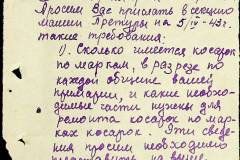 Просим Вас прислать в секцию
Машин Претуры на 5/IV-43 г.
такие требования:
1). Сколько имеется косарок
по маркам, в разрезе по
каждой общине вашей
примарии, и какие необхо-
димые части нужны для
ремонта косарок по мар-
ках косарок. Эти сведе-
ния просим необходимо